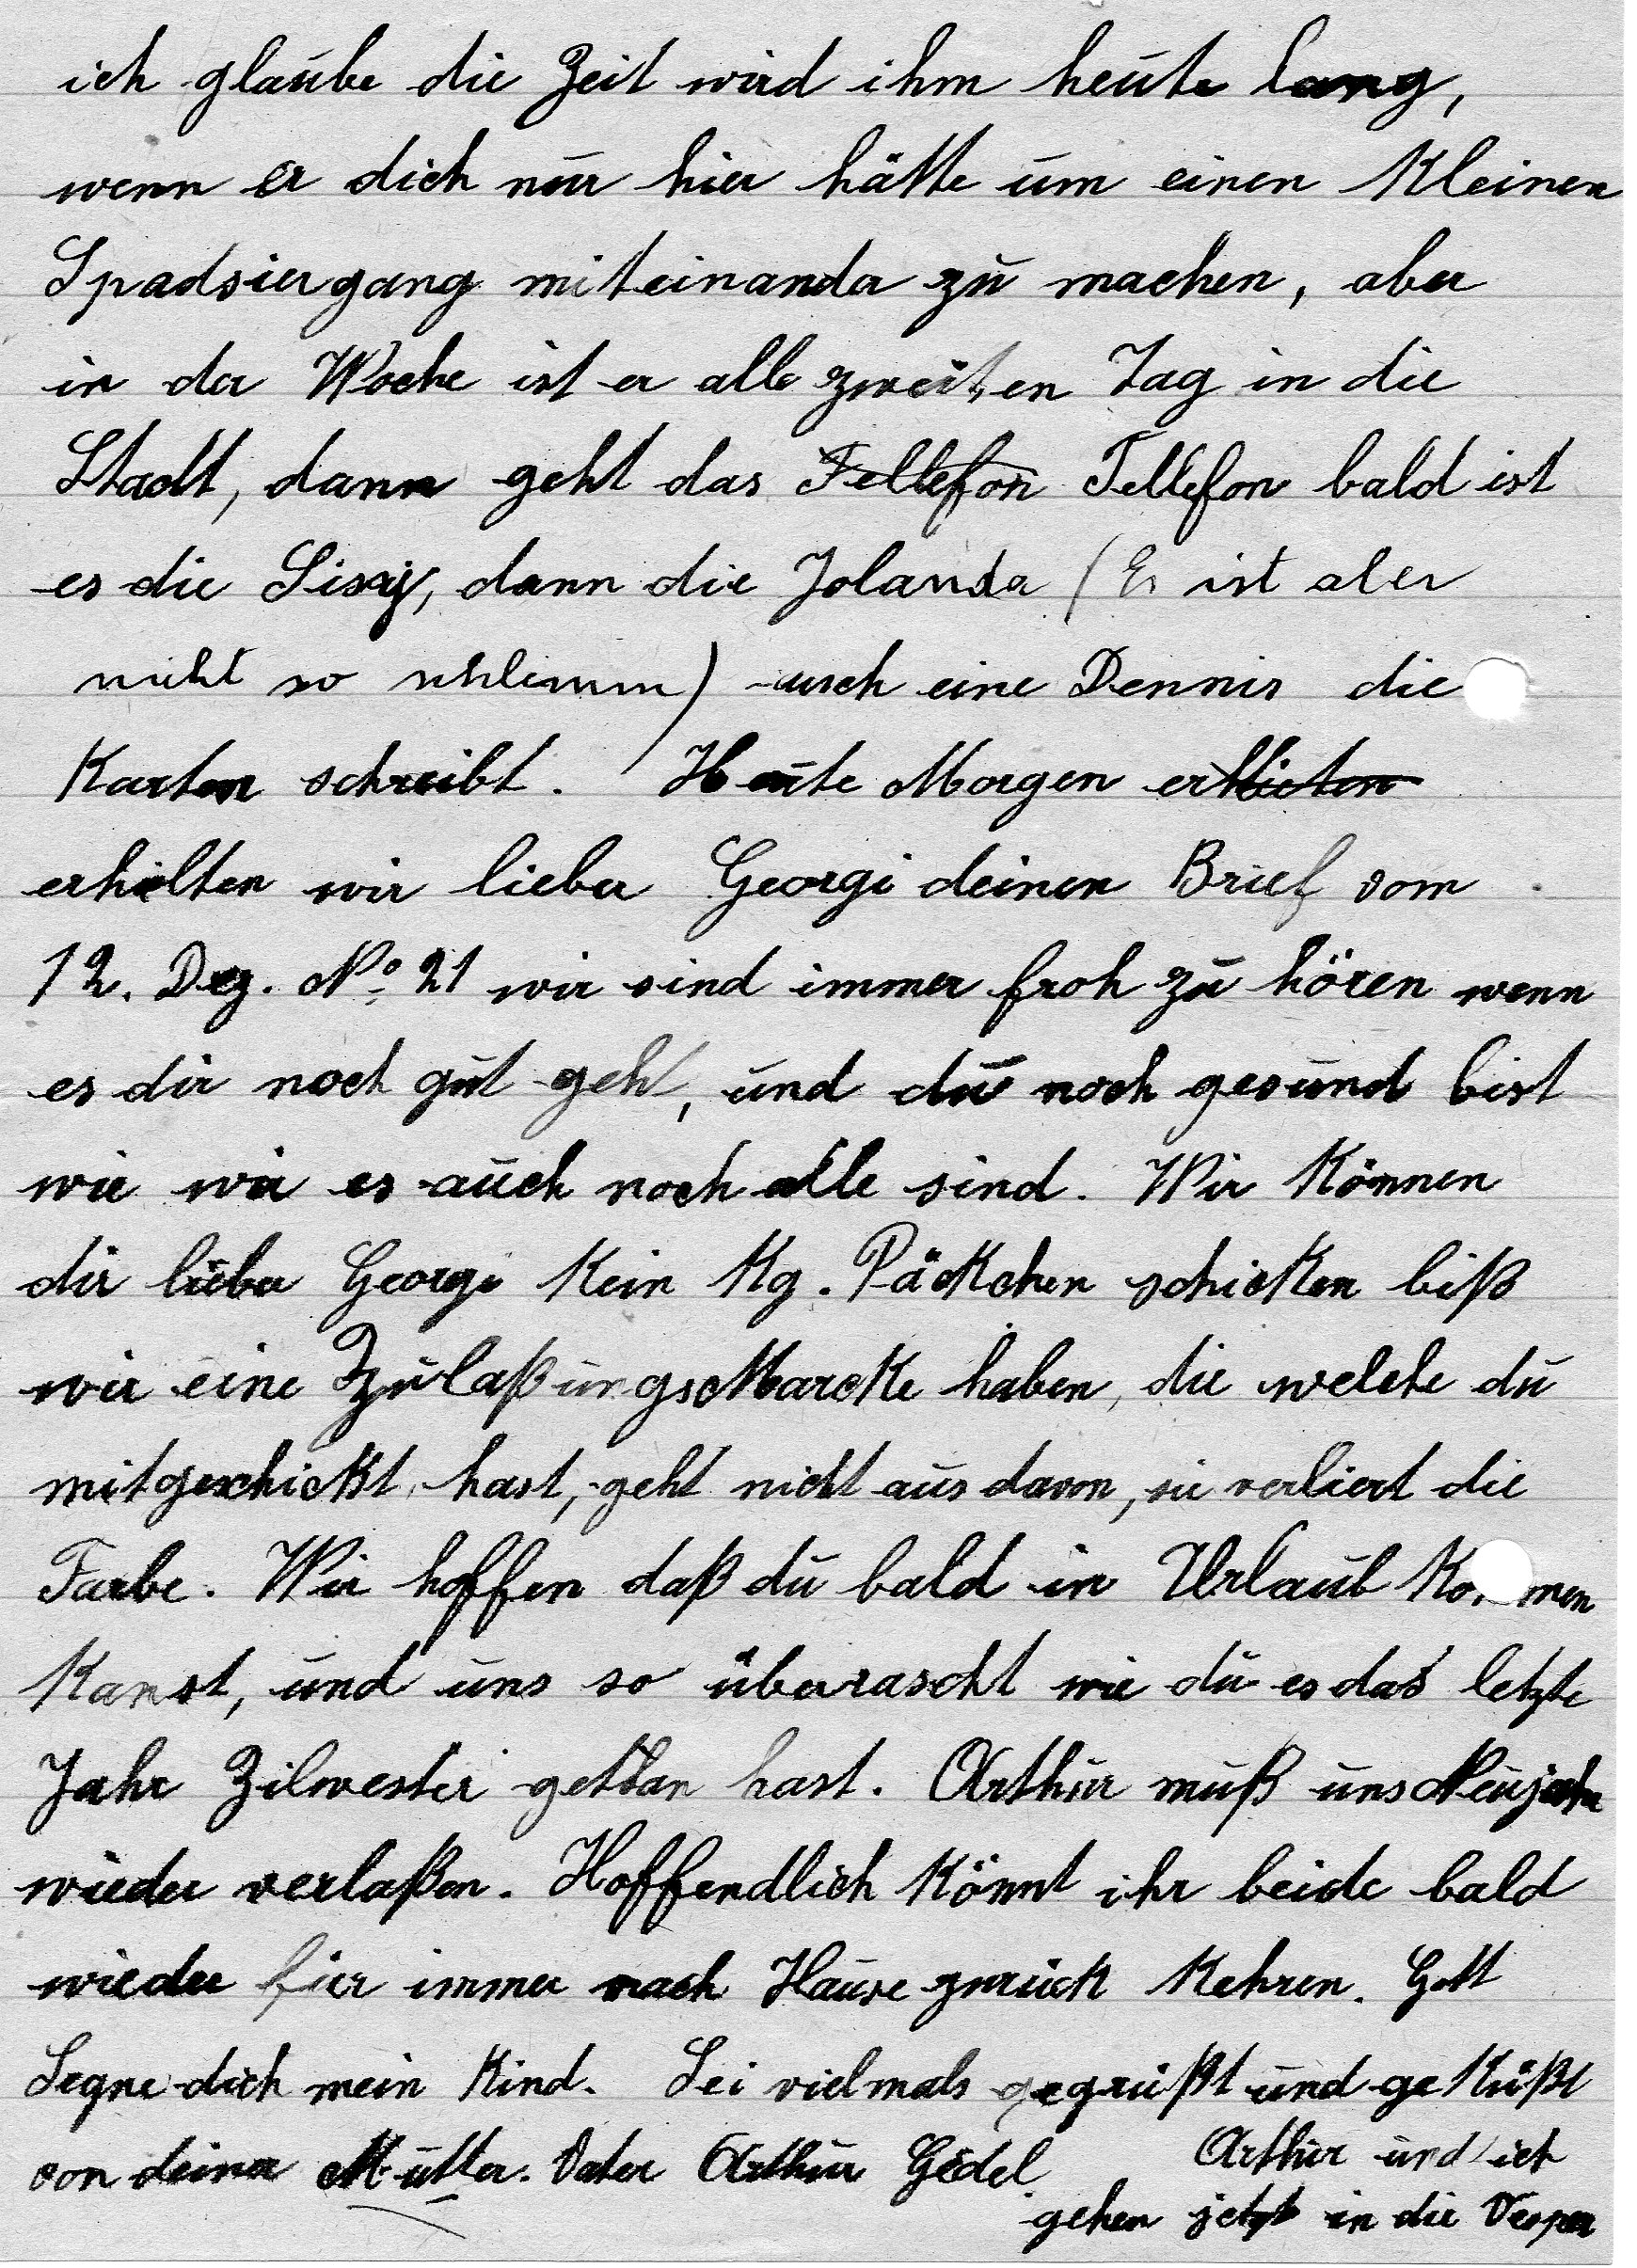 ich glaube die Zeit wird ihm heute lang,
wenn er dich nur hier hätte um einen Kleinen
Spadsiergang miteinander zu machen, aber
in der Woche ist er alle zweiten Tag in die
Stadt, dann geht das Tellefon Tellefon bald ist
es die Sisy, dann die Jolanda (Es ist aber
nicht so schlimm) auch eine Dennis die
Karten schreibt. Heute Morgen
erhielten wir lieber Georgi deinen Brief vom
12. Dez. No. 21 wir sind immer froh zu hören wenn
es dir noch gut geht, und du noch gesund bist
wie wir es auch noch alle sind. Wir Können
dir lieber Georgi Kein Kg. Päckchen schicken biß
wir eine Zulaßungsmarcke haben, die welche du
mitgeschickt hast, geht nicht aus davon, sie verliert die
Farbe. Wir hoffen daß du bald in Urlaub Kommen
Kanst, und uns so überrascht wie du es das letzte
Jahr Zilvester getan hast. Arthur muß uns Neujahr
wieder verlaßen. Hoffendlich Könnt ihr beide bald
wieder für immer nach Hause zurück Kehren. Gott
Segne dich mein Kind. Sei vielmals gegrüßt und geküßt
von deiner Mutter. Vater Arthur Gödel
Arthur und ich
gehen jetzt in die Vesper